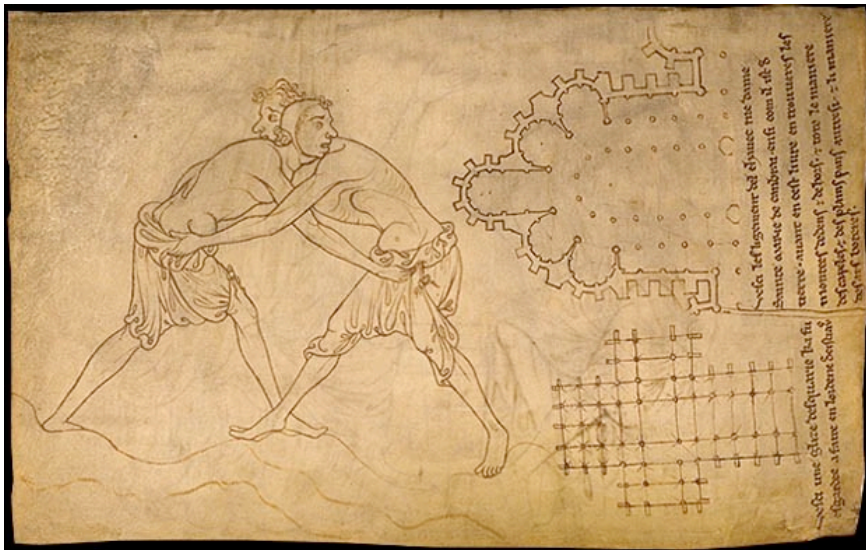 vesci lesligement del chavec me dame
Sainte marie de canbrai ensi com il ist de
tierre. avant en cest livre en trouveres les
montees dedens ⁊ dehors. ⁊ tote le maniere
des capeles ⁊ des plains pans autresi. ⁊ li maniere
des ars boteres.
vesci une glize desquarie ki fu
esgardee a faire en lordene